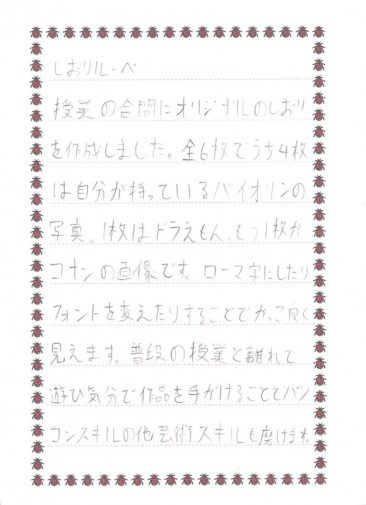 しおりルーペ
授業の合間にオリジナルのしおり
を作成しました。全6枚でうち4枚
は自分が持っているバイオリンの
写真。1枚はドラえもん、もう1枚が
コナンの画像です。ローマ字にしたり
フォントを変えたりすることでかっこ良く
見えます。普段の授業と離れて
遊び気分で作品を手がけることでパソ
コンスキルの他芸術スキルも磨けます。